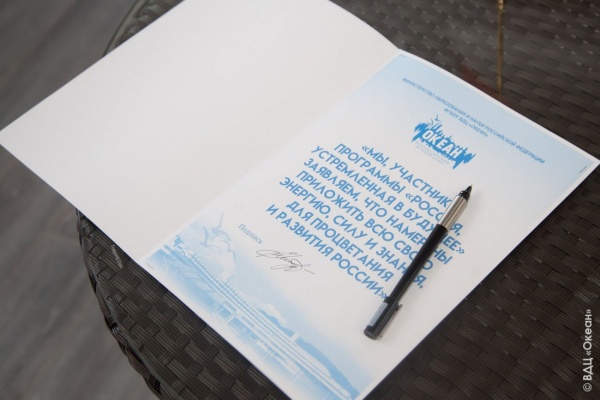 МИНИСТЕРСТВО ОБРАЗОВАНИЯ И НАУКИ РОССИЙСКОЙ ФЕДЕРАЦИИ
ФГБОУ ВДЦ «ОКЕАН»
ОКЕАН
«МЫ, УЧАСТНИКИ
ПРОГРАММЫ «РОССИЯ,
УСТРЕМЛЕННАЯ В БУДУЩЕЕ»
ЗАЯВЛЯЕМ, ЧТО НАМЕРЕНЫ
ПРИЛОЖИТЬ ВСЮ СВОЮ
ЭНЕРГИЮ, СИЛУ И ЗНАНИЯ,
ДЛЯ ПРОЦВЕТАНИЯ
И РАЗВИТИЯ РОССИИ»
Подпись
© ВДЦ «Океан»